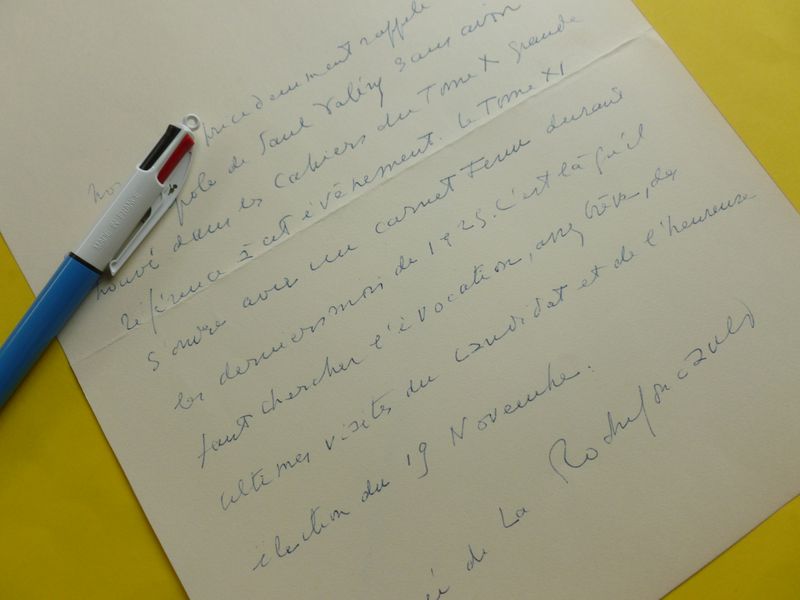 précédemment rappelé
pôle de Paul Valéry sans avoir
trouvé dans les Cahiers du Tome X grande
référence à cet évènement. Le Tome XI
s'ouvre avec un carnet tenu durant
les derniers mois de 1925. C'est là qu'il
faut chercher l'évocation, assez brève, des
ultimes visites du candidat et de l'heureuse
élection du 19 Novembre.
de La Rochefoucauld